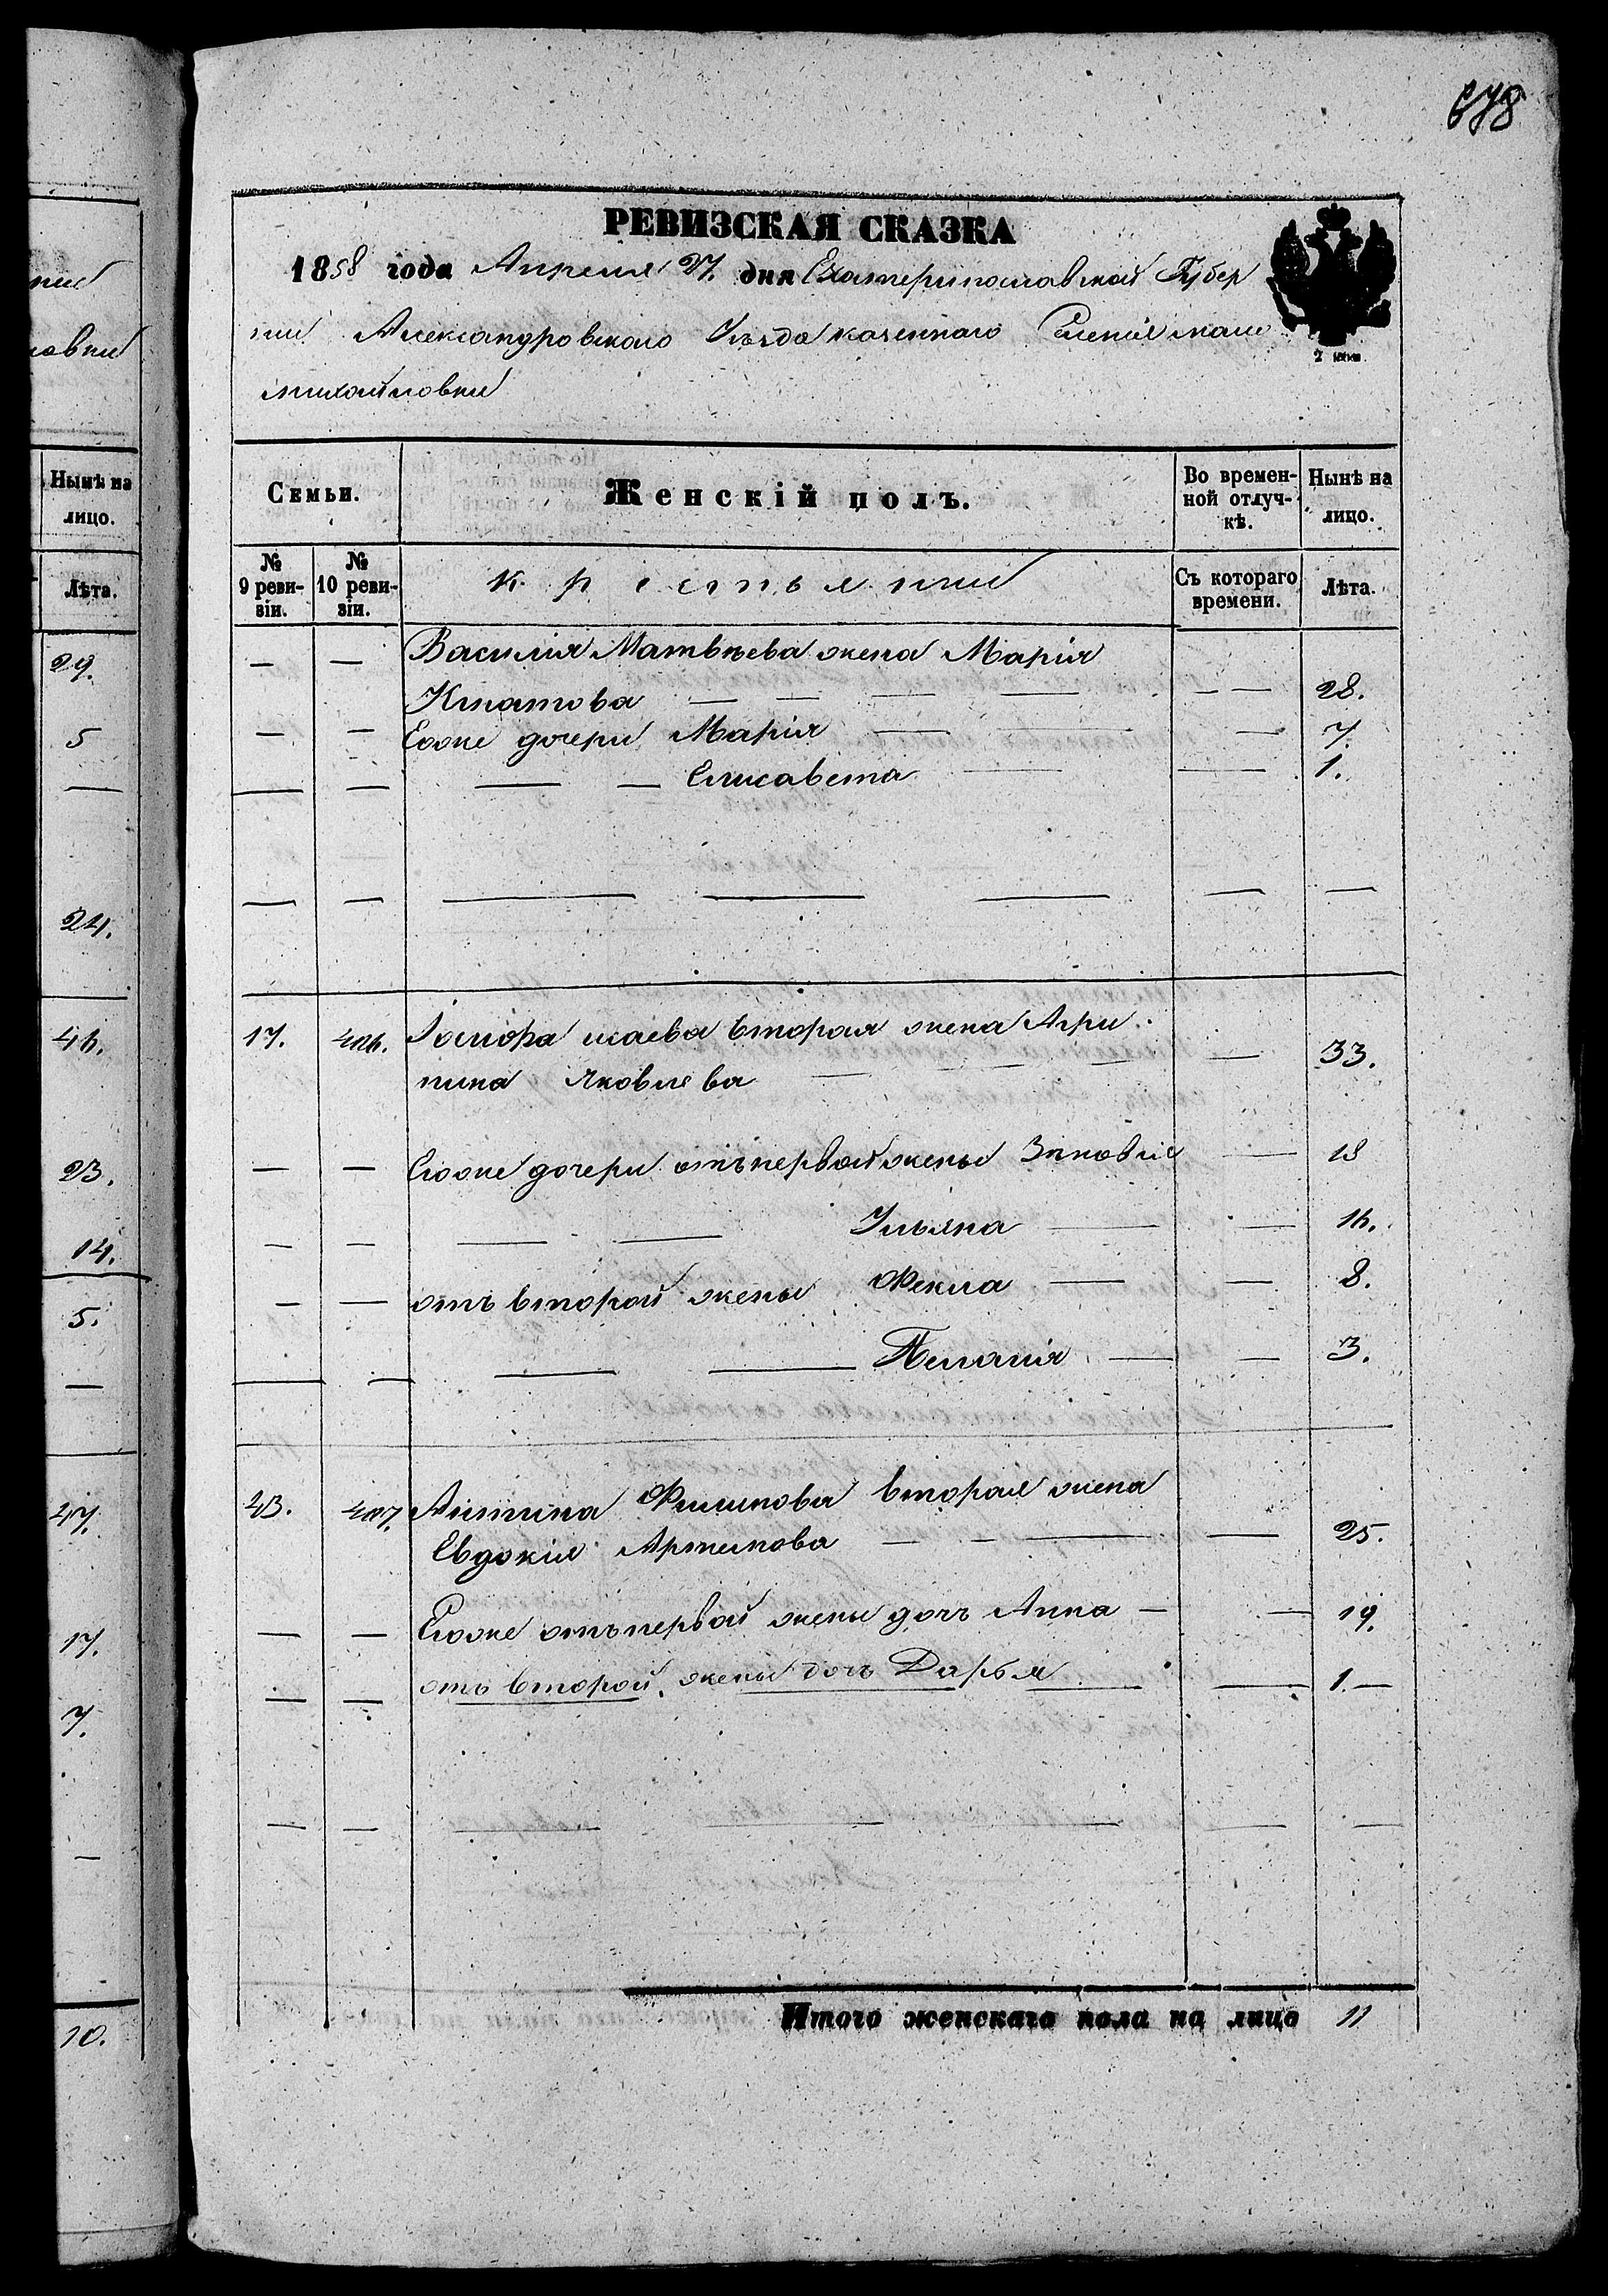 678
РЕВИЗСКАЯ СКАЗКА
1858 года Апреля 27. дня Екатеринославской Губер
нии Александровского Уѣзда казеннаго Селенія мало
михайловки
2 коп.
Семьи.
Женскій полъ.
Во времен-
ной отлуч-
кѣ.
Нынѣ на
лицо.
№
9 реви-
зіи.
№
10 реви-
зіи.
крестьянии
Съ котораго
времени.
Лѣта.
— — Василія Матвѣева жена Марія
Игнатова — — — — — — 28.
— — Егоже дочери Марія — — — 7.
— — — — Елисавета — — 1.
— — — — — — —
17. 406. Іосифа исаева вторая жена Агри
пина Яковлева — — — — — 33.
— — Егоже дочери отъ первой жены Зиновія — 18
— — — — Ульяна — — 16.
— — отъ второй жены Фекла — — 8.
— — — — Пелагія — — 3.
23. 407. Антипа Филипова вторая жена
Евдокія Артемова — — — — 25.
— — Егоже отъ первой жены дочь Анна — — 19.
— — отъ второй жены дочь Дарья — 1. —
— — — — — — —
Итого женскаго пола на лицо 11
нии
ловки
Нынѣ на
лицо.
Лѣта.
29.
5
—
24.
46.
23.
14.
5.
—
47.
17.
7.
—
10.